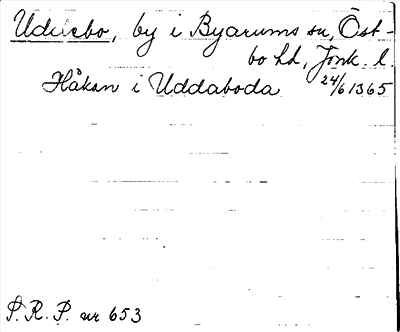 Uddebo, by i Byarums sn, Öst-
bo hd, Jönk. l.
Håkan i Uddaboda 24/6 1365
P. R. P. nr 653